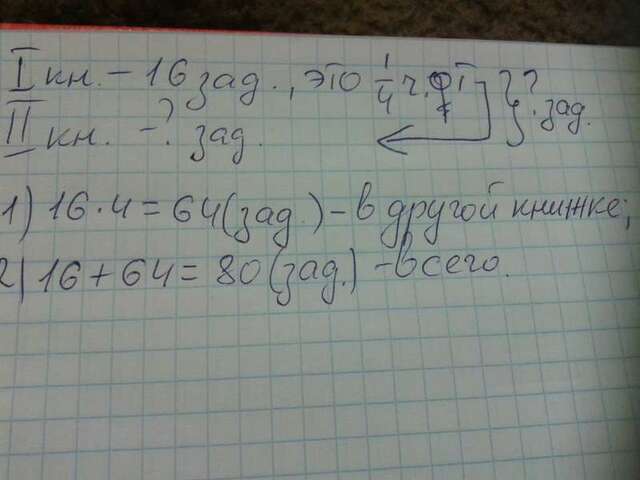 I кн. – 16 зад., это 1/4 ч. от } ? зад.
II кн. – ? зад.
1) 16 · 4 = 64 (зад.) – в другой книжке;
2) 16 + 64 = 80 (зад.) – всего.